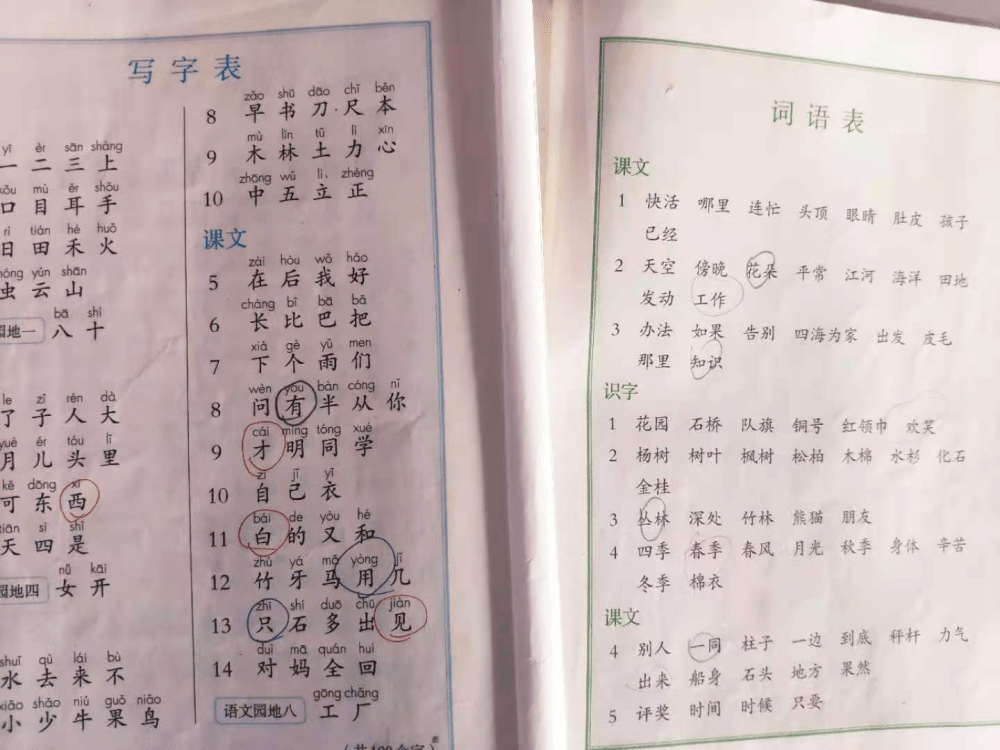 写字表
yī èr sān shàng
一 二 三 上
kǒu mù ěr shǒu
口 目 耳 手
rì tián hé huǒ
日 田 禾 火
yún shān
虫 云 山
bā shí
园地一 八 十
le zǐ rén dà
了 子 人 大
yuè ér tóu lǐ
月 儿 头 里
kě dōng xī
可 东 西
tiān sì shì
天 四 是
nǚ kāi
园地四 女 开
shuǐ qù lái bù
水 去 来 不
xiǎo shǎo niú guǒ niǎo
小 少 牛 果 鸟
zǎo shū dāo chǐ běn
8 早 书 刀 尺 本
mù lín tǔ lì xīn
9 木 林 土 力 心
zhōng wǔ lì zhèng
10 中 五 立 正
课文
zài hòu wǒ hǎo
5 在 后 我 好
cháng bǐ bā bǎ
6 长 比 巴 把
xià gè yǔ men
7 下 个 雨 们
wèn yǒu bàn cóng nǐ
8 问 有 半 从 你
cái míng tóng xué
9 才 明 同 学
zì jǐ yī
10 自 己 衣
bái de yòu hé
11 白 的 又 和
zhú yá mǎ yòng jǐ
12 竹 牙 马 用 几
zhǐ shí duō chū jiàn
13 只 石 多 出 见
duì mā quán huí
14 对 妈 全 回
gōng chǎng
语文园地八 工 厂
词语表
课文
1 快活 哪里 连忙 头顶 眼睛 肚皮 孩子
已经
2 天空 傍晚 花朵 平常 江河 海洋 田地
发动 工作
3 办法 如果 告别 四海为家 出发 皮毛
那里 知识
识字
1 花园 石桥 队旗 铜号 红领巾 欢笑
2 杨树 树叶 枫树 松柏 木棉 水杉 化石
金桂
3 丛林 深处 竹林 熊猫 朋友
4 四季 春季 春风 月光 秋季 身体 辛苦
冬季 棉衣
课文
4 别人 一同 柱子 一边 到底 秤杆 力气
出来 船身 石头 地方 果然
5 评奖 时间 时候 只要